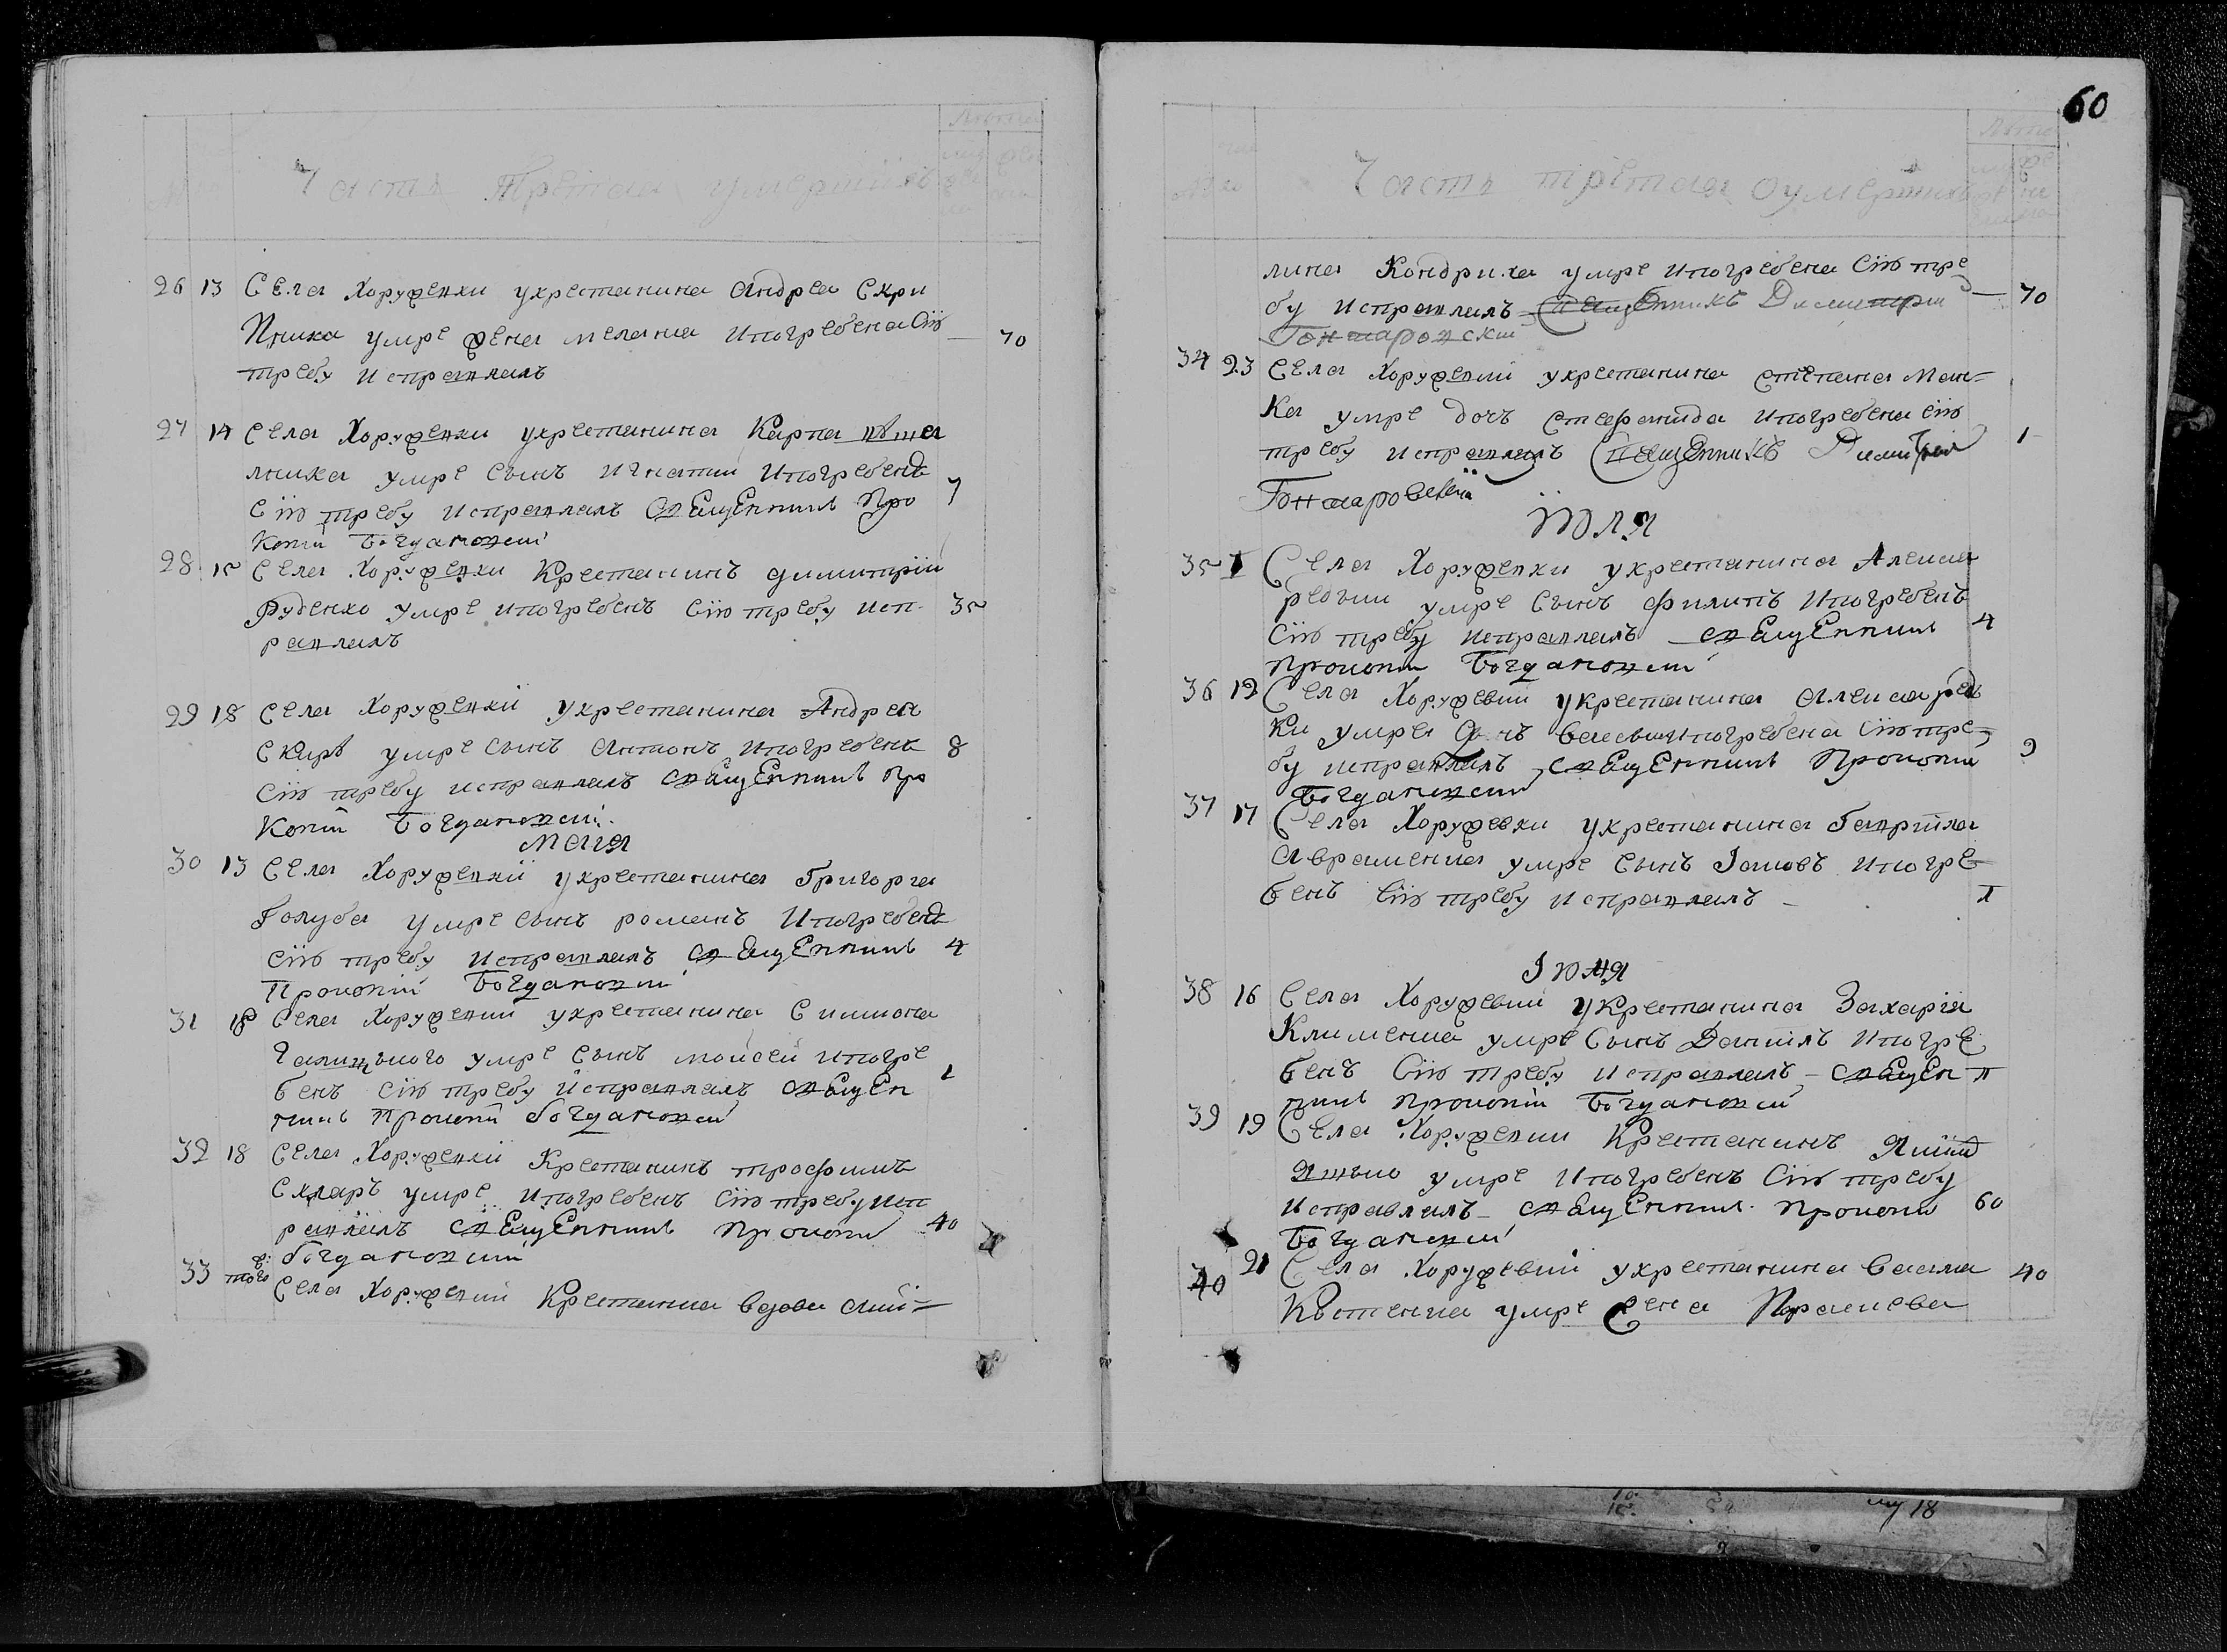 Часть Третая умершихъ
26 13 Села Хоружевки укрестанина Андрея Скри
пника умре жена мелания ипогребена Сію
требу исправлялъ 70
27 14 Села Хоружевки укрестанина Карпа
лника умре сынъ Игнатий ипогребенъ
Сію требу исправлялъ священникъ Про 7
копій Богдановский
28 15 Села Хоружевки Крестанинъ димитрій
Руденко умре ипогребенъ Сію требу исп 35
равлялъ
29 18 Села Хоружевкй укрестанина Андрея
Скирѣ умре сынъ Антонъ ипогребенъ 8
Сію требу исправлялъ священникъ про
копій Богдановский
мая
30 13 Села Хоружевкй укрестанина Григория
Голуба умре сынъ романъ ипогребенъ
Сію требу исправлялъ священникъ 4
Прокопій Богдановский
31 18 Села Хоружевкй укрестанина Симиона
умре сынъ мойсей ипогре
бенъ Сію требу исправлялъ священ 1
никъ Прокопій богдановский
32 18 Села Хоружевкй Крестанинъ трофимъ
Скларъ умре ипогребенъ Сію требу исп
равлялъ священникъ прокопи 40
богдановский
33 того Села Хоружевкй Крестанка вдова Аки=
60
Часть третая оумершихъ
лина Кондриха умре ипогребена Сію тре
бу исправлялъ Священникъ Димитрій 70
Гончаровский
34 23 Села Хоружевкй укрестанина степана Мам=
ка умре дочъ стефанида ипогребена сію
требу исправлялъ Священникъ Димитрий 1
Гончаровский
Июля
35 1 Села Хоружевки укрестанина Алекса
редьки умре сынъ филипъ ипогребенъ
Сію требу исправлялъ священникъ 4
прокопи Богдановский
36 12 Села Хоружевки укрестанина Алекса ред
ки умре дочъ ипогребена Сію тре=
бу исправлялъ священникъ Прокопій 9
Богдановский
37 17 Села Хоружевки укрестанина Гаврила
Авраменка умре сынъ Iаковъ ипогре
бенъ Сію требу исправлялъ 1
Iюня
38 16 Села Хоружевки укрестанина Захарія
Клименка умре Сынъ Даніилъ ипогре
бенъ Сію требу исправлялъ священ
никъ прокопій Богдановский
39 19 Села Хоружевки Крестанинъ
Яцько умре ипогребенъ Сію требу
исправлялъ священникъ прокопи 60
Богдановский
40 21 Села Хоружевки укрестанина васила 40
Костенка умре жена Параскева